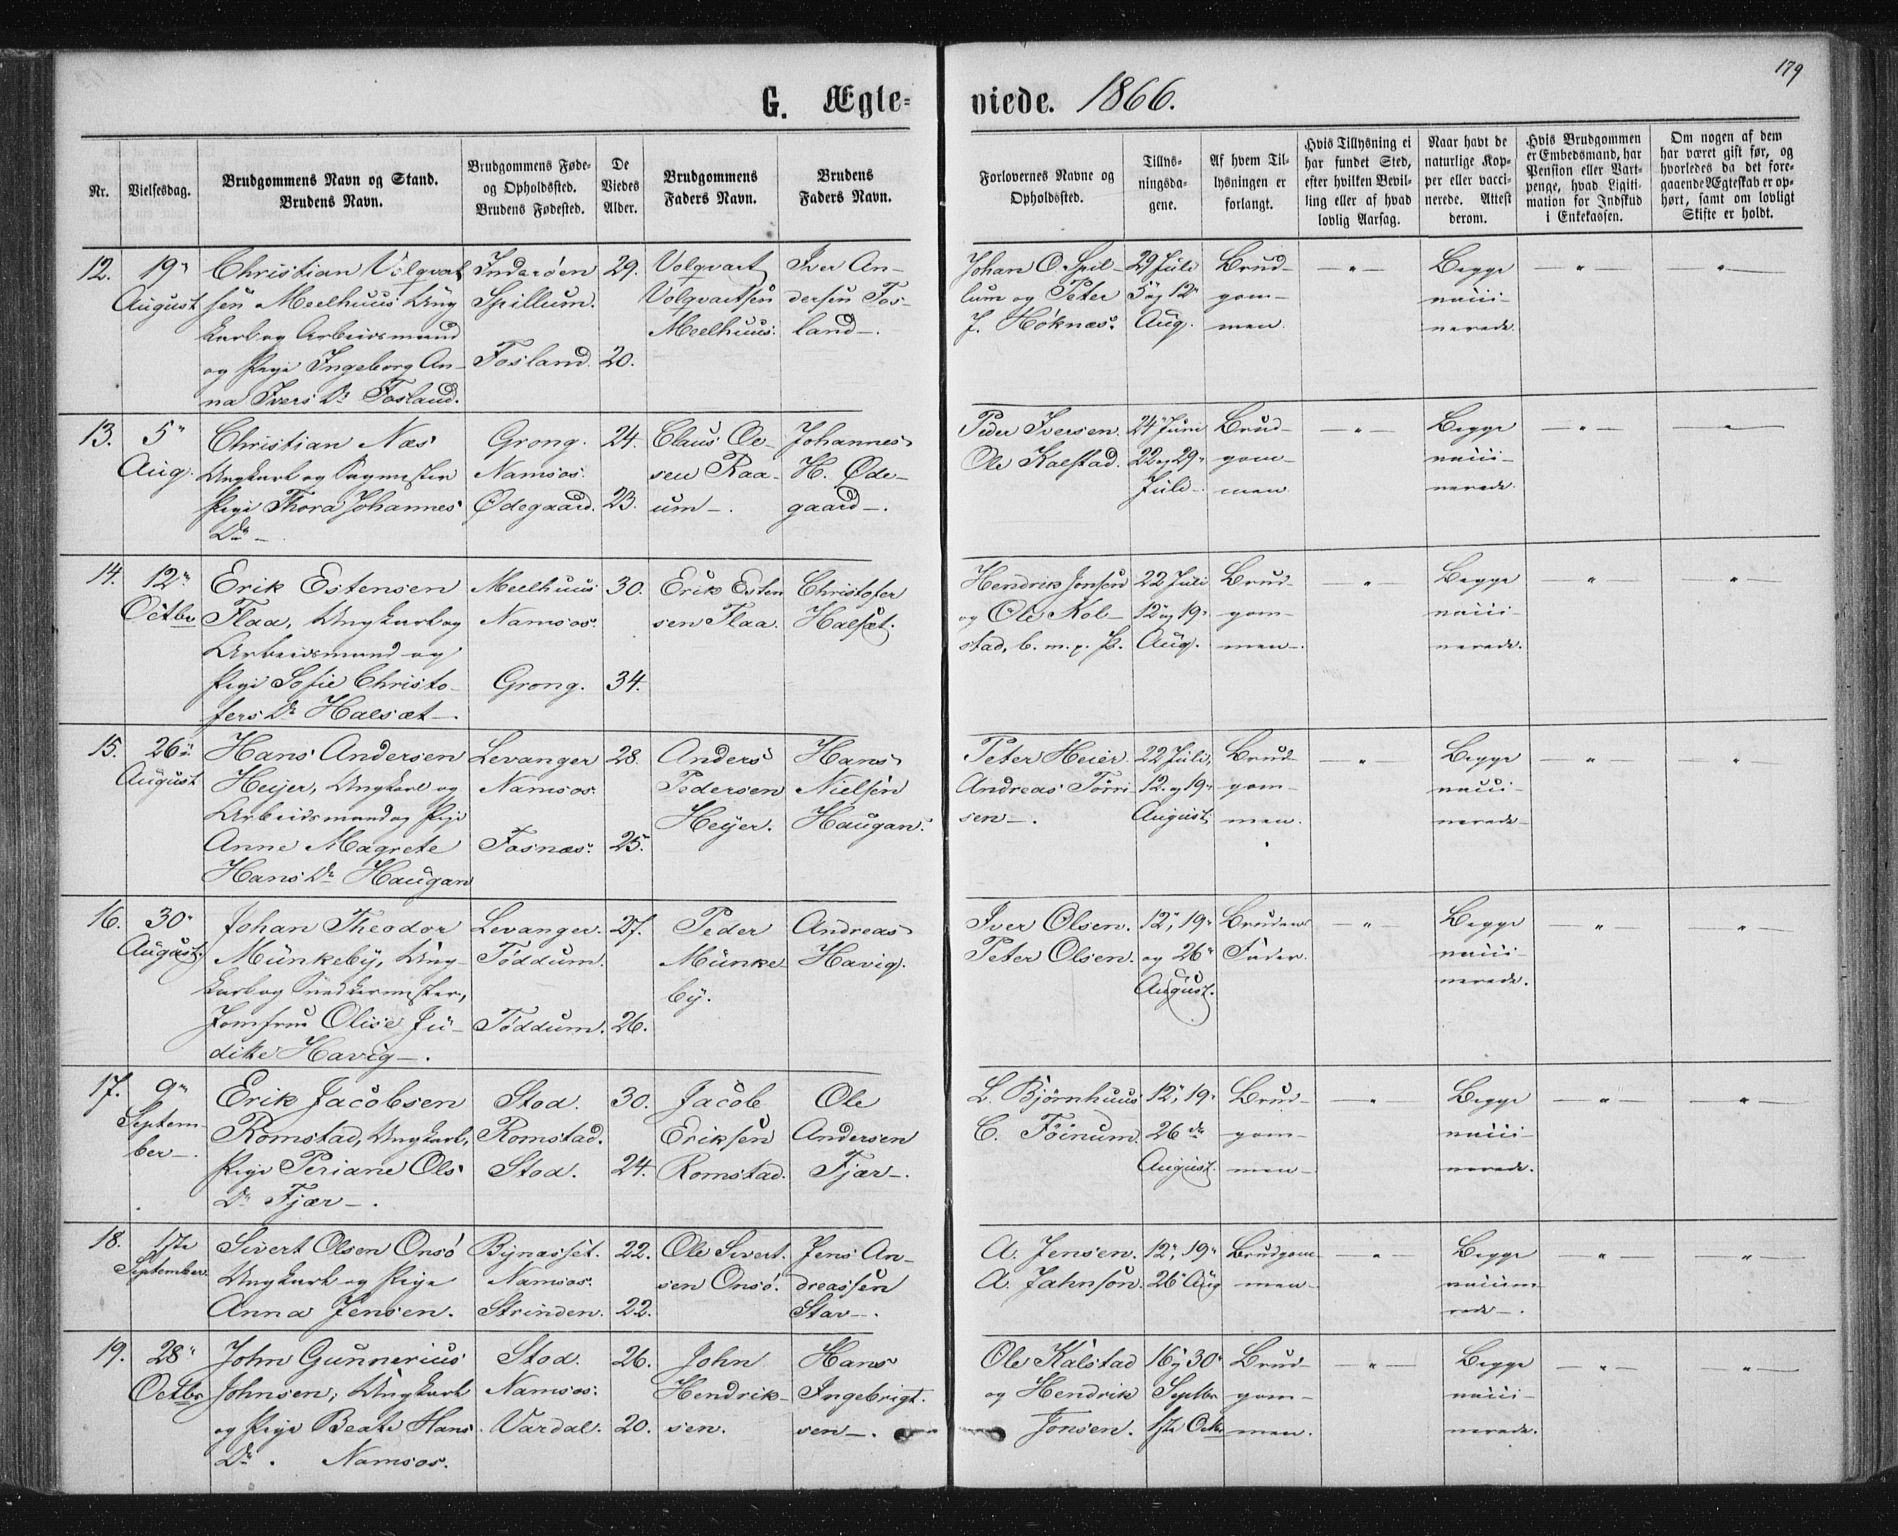 179
G. Ægte-
viede. 1866.
Nr.
Vielsesdag.
Brudgommens Navn og Stand.
Brudens Navn.
Brudgommens Føde-
og Opholdssted.
Brudens Fødested.
De
Viedes
Alder.
Brudgommens
Faders Navn.
Brudens
Faders Navn.
Forlovernes Navne og
Opholdssted.
Tillys-
ningsda-
gene.
Af hvem Til-
lysningen er
forlangt.
Hvis Tillysning ei
har fundet Sted,
efter hvilken Bevil-
ling eller af hvad
lovlig Aarsag.
Naar havt de
naturlige Kop-
per eller vacci-
nerede. Attest
derom.
Hvis Brudgommen
er Embedsmand, har
Pension eller Vart-
penge, hvad Ligiti-
mation for Indskud
i Enkekassen.
Om nogen af dem
har været gift før, og
hvorledes da det fore-
gaaende Ægteskab er op-
hørt, samt om lovligt
Skifte er holdt.
12.
19"
August
Christian Volqvart
sen Meelhuus Ung
karl og Arbeidsmand
og Pige Ingeborg An-
na Ivers Dr Fosland.
Inderøen
Spillum.
Fosland.
29.
20.
Volqvart
Volqvartsen
Meelhuus.
Iver An-
dersen Fos-
land-.
Johan O. Spil-
lum og Peter
J. Høknæs.
29 Juli
5 og 12"
Aug.
Brud-
gom-
men.
-"-
Begge
vacci-
nerede.
-"-
"-
13.
5"
Aug.
Christian Næs
Ungkarl og Sagmester
Pige Thora Johannes
Dr -
Grong.
Namsos.
Ødegaard.
24.
23.
Claus Ol-
sen Raa-
um-.
Johannes
H. Øde-
gaard-.
Peder Iversen.
Ole Kalstad.
24 Juni
22 og 29"
Juli-
Brud-
gom-
men
-"-
Begge
vacci-
nerede.
-"-
"-
14.
12te
Octbr
Erik Estensen
Flaa, Ungkarl og
Arbeidsmand og
Pige Sofie Christo-
fers Dr Halsæt-.
Meelhuus
Namsos.
Grong.
30.
34.
Erik Esten
sen Flaa.
Christofer
Halsæt.
Hendrik Jonsen
og Ole Kol-
stad, b. m. p. P.
22 Juli
12 og 19"
Aug.
Brud-
gom-
men-.
"
Begge
vacci-
nerede.
"
"
15.
26de
August
Hans Andersen
Heyer, Ungkarl og
Arbeidsmand og Pige
Anne Magrete
Hans Dr Haugan
Levanger
Namsos.
Fosnæs.
28.
25.
Anders
Pedersen
Heyer.
Hans
Nielsen
Haugan.
Peter Heier.
Andreas Torri-
sen-.
22 Juli,
12. og 19"
August
Brud-
gom-
men.
-"-
Begge
vacci-
nerede-
-"-
-"-
16.
30"
August.
Johan Theodor
Munkeby, Ung-
karl og Snedkermester,
Jomfrue Olise Ju-
dike Havig-.
Levanger.
Føddum.
Føddum.
27.
26.
Peder
Munke
by.
Andreas
Havig.
Iver Olsen.
Peter Olsen.
12", 19"
og 26"
August.
Brudens
Fader.
-"-
Begge
vacci-
nerede.
"
-"-
17.
9de
Septem-
ber-.
Erik Jacobsen
Romstad, Ungkarl,
Pige Periane Ols
Dr Fjær-.
Stod.
Romstad.
Stod.
30.
24.
Jacob
Eriksen
Romstad.
Ole
Andersen
Fjær-.
L. Bjørnhuus
C. Föinum.
12", 19"
26de
August.
Brud-
gom-
men-
-"-
Begge
vacci-
nerede.
-"-
-"-
18.
1ste
September
Sivert Olsen Onsö
Ungkarl og Pige
Anna Jensen.
Bynæsset.
Namsos.
Strinden.
22.
22.
Ole Sivert.
sen Onsö.
Jens An-
dreassen
Stav-.
A. Jensen.
A. Jahnson.
12", 19"
26 Aug
Brudgom-
men-
-"-
Begge
vaccine-
rede-.
-"-
"-
19.
28"
Octbr
John Gunnerius
Johnsen, Ungkarl
og Pige Beate Hans
Dr. Namsos.
Stod.
Namsos.
Vardal.
26.
20.
John
Hendrik-
sen.
Hans
Ingebrigt.
sen-.
Ole Kalstad
og Hendrik
Jonsen.
16 og 30"
Septbr
1ste Octbr
Brud-
gom-
men.
-"-
Begge
vacci-
nerede.
-"-
"-